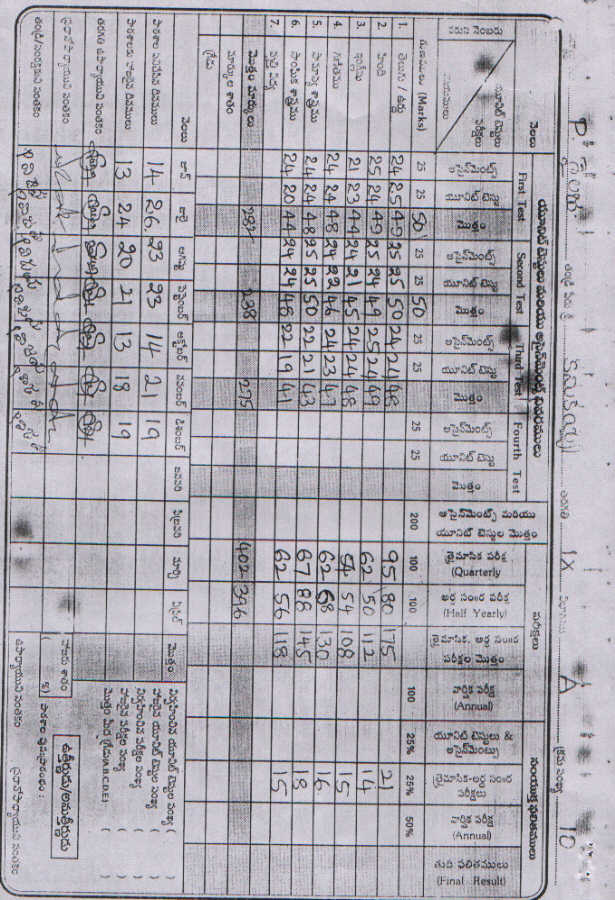 P. శైలజ తండ్రి పేరు శ్రీ తరగతి IX విభాగము A క్రమ సంఖ్య 10
యూనిట్ టెస్టులు మరియు అసైన్‌మెంట్స్ వివరములు పరీక్షలు సంయుక్త ఫలితములు
First Test Second Test Third Test Fourth Test
వరుస నెంబరు యూనిట్ టెస్టులు పరీక్షలు విషయములు అసైన్‌మెంట్స్ యూనిట్ టెస్టు మొత్తం అసైన్‌మెంట్స్ యూనిట్ టెస్టు మొత్తం అసైన్‌మెంట్స్ యూనిట్ టెస్టు మొత్తం అసైన్‌మెంట్స్ యూనిట్ టెస్టు మొత్తం అసైన్‌మెంట్స్ మరియు యూనిట్ టెస్టుల మొత్తం త్రైమాసిక పరీక్ష (Quarterly అర్ధ సం॥ర పరీక్ష (Half Yearly) త్రైమాసిక, అర్ధ సం॥ర పరీక్షల మొత్తం వార్షిక పరీక్ష (Annual) యూనిట్ టెస్టులు & అసైన్‌మెంట్సు త్రైమాసిక-అర్ధ సం॥ర పరీక్షలు వార్షిక పరీక్ష (Annual) తుది ఫలితములు (Final Result)
గుణములు (Marks) 25 25 50 25 25 50 25 25 25 25 200 100 100 100 25% 25% 50%
1. తెలుగు / ఉర్దు 24 25 49 25 25 50 24 24 48 95 80 175 21
2. హింది 25 24 49 25 24 49 25 24 49 62 50 112 14
3. ఇంగ్లీషు 21 23 44 24 21 45 24 24 48 54 54 108 15
4. గణితము 24 24 48 24 22 46 24 23 47 62 68 130 16
5. సామాన్య శాస్త్రము 24 24 48 25 25 50 22 21 43 67 88 145 18
6. సాంఘిక శాస్త్రము 24 20 44 24 24 48 22 19 41 62 56 118 15
7.
మొత్తం మార్కులు 282 288 275 402 396
మార్కుల శాతం
గ్రేడు
నెలలు జూన్ జులై ఆగష్టు సెప్టెంబర్ అక్టోబర్ నవంబర్ డిశంబర్ జనవరి ఫిబ్రవరి మార్చి ఏప్రిల్ మొత్తం
పాఠశాల పనిచేసిన దినములు 14 26 23 23 14 21 19
పాఠశాలకు హాజరైన దినములు 13 24 20 21 13 18 19
తరగతి ఉపాధ్యాయుని సంతకం
ప్రధానోపాధ్యాయుని సంతకం
తండ్రి/సంరక్షకుని సంతకం
నిర్వహించిన యూనిట్ టెస్టుల సంఖ్య ( )
హాజరైన యూనిట్ టెస్టుల సంఖ్య ( )
నిర్వహించిన పరీక్షల సంఖ్య ( )
హాజరైన పరీక్షల సంఖ్య ( )
మొత్తం మీద గ్రేడు(A.B.C.D.E) ( )
ఉత్తీర్ణుడు/అనుత్తీర్ణుడు
హాజరు శాతం ( %)
ఉపాధ్యాయుని సంతకం ప్రధానోపాధ్యాయుని సంతకం